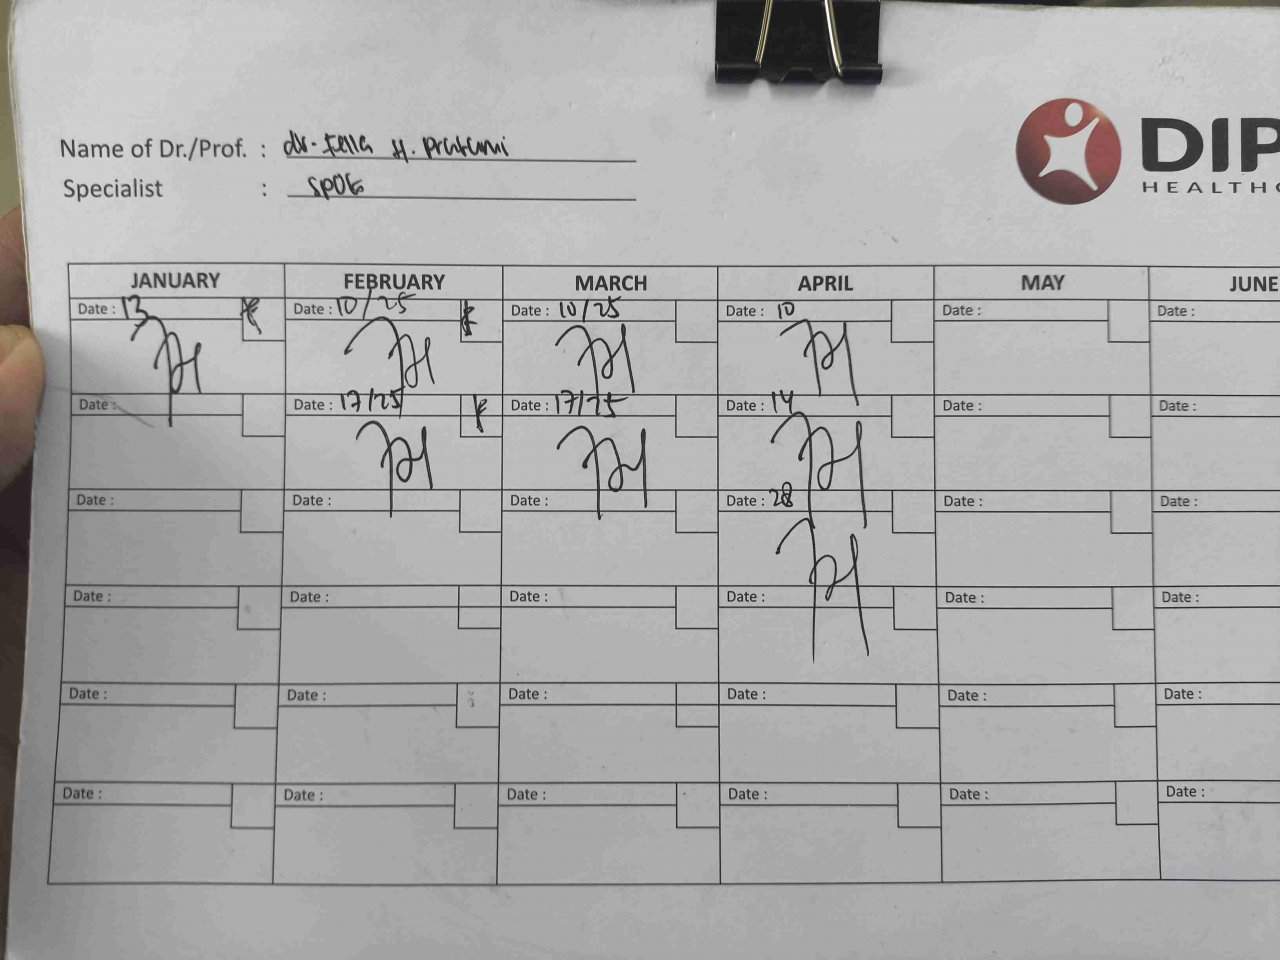 DIP
HEALTHC
Name of Dr./Prof. : dr. Fella H. Pratami
Specialist : SPOG
JANUARY FEBRUARY MARCH APRIL MAY JUNE
Date : 13 Date : 10/25 Date : 10/25 Date : 10 Date : Date :
Date : Date : 17/25 Date : 17/25 Date : 14 Date : Date :
Date : Date : Date : Date : 28 Date : Date :
Date : Date : Date : Date : Date : Date :
Date : Date : Date : Date : Date : Date :
Date : Date : Date : Date : Date : Date :